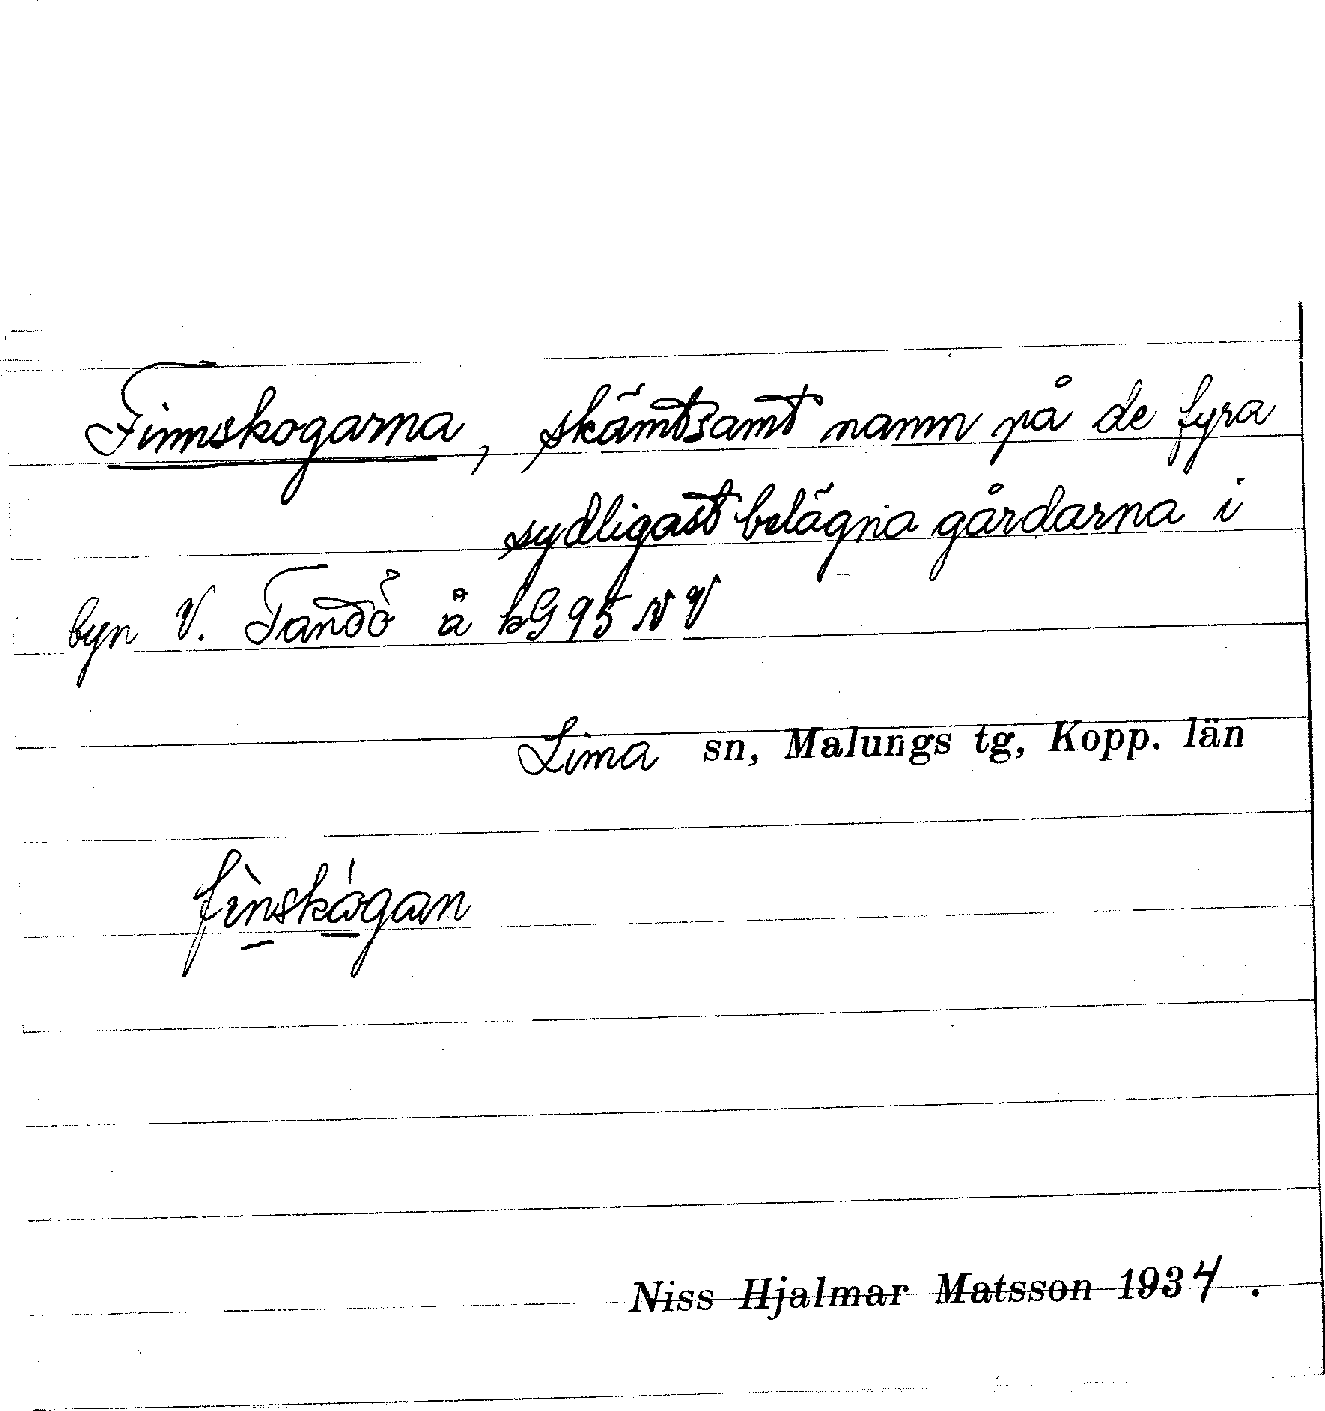 Finnskogarna, skämtsamt namn på de fyra
sydligast belägna gårdarna i
byn V. Tandö å bG 95 NV
Lima sn, Malungs tg, Kopp. län
fìnskògan
Niss Hjalmar Matsson 1934.